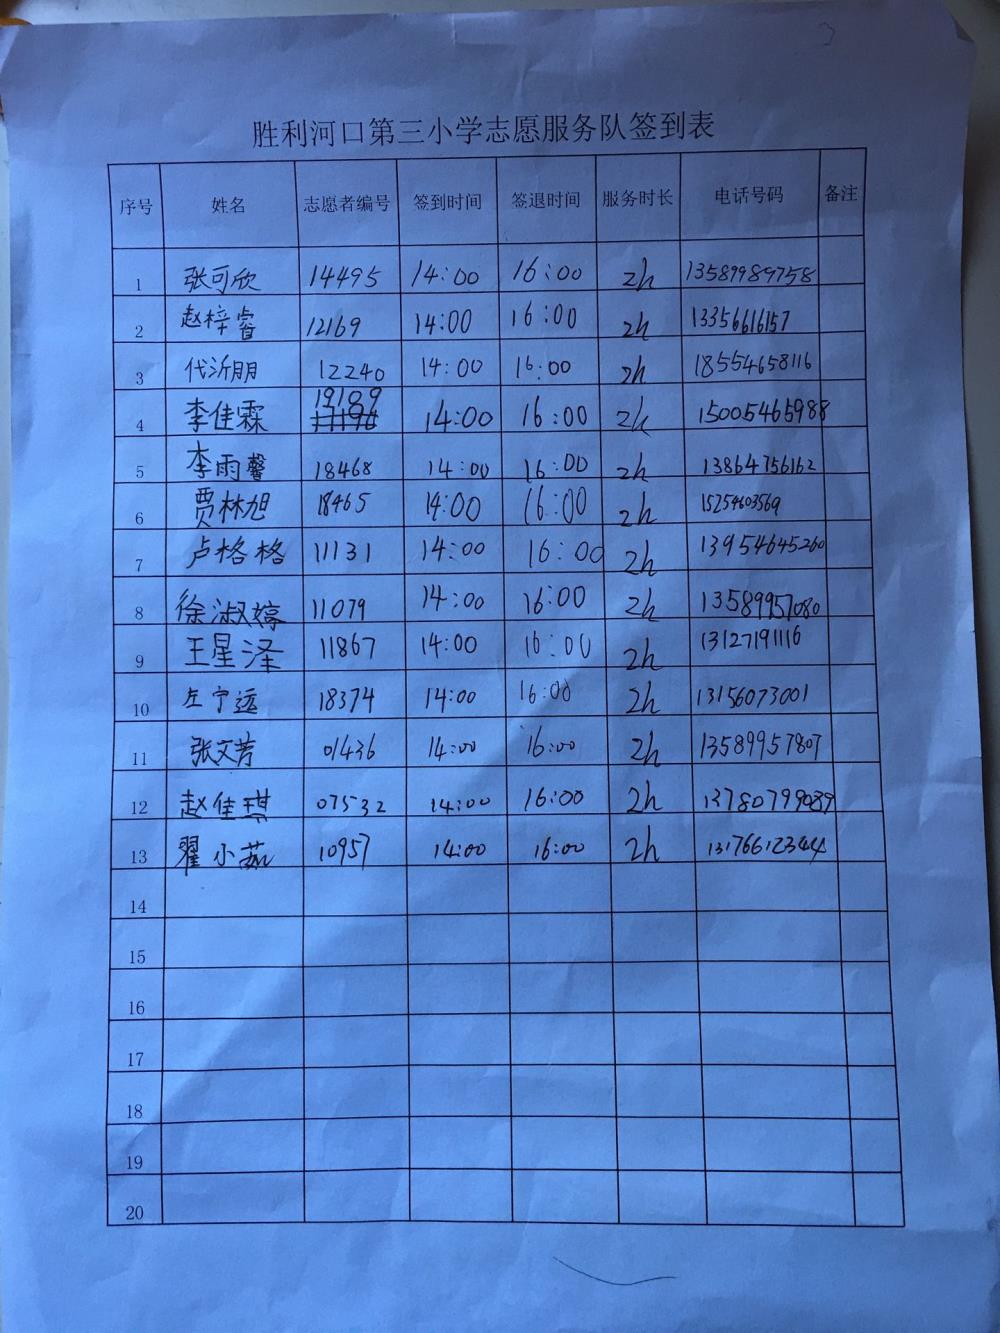 胜利河口第三小学志愿服务队签到表
序号 姓名 志愿者编号 签到时间 签退时间 服务时长 电话号码 备注
1 张可欣 14495 14:00 16:00 2h 13589989758
2 赵梓睿 12169 14:00 16:00 2h 13356616157
3 代沂朋 12240 14:00 16:00 2h 18554658116
4 李佳霖 19189 14:00 16:00 2h 15005465988
5 李雨馨 18468 14:00 16:00 2h 13864756162
6 贾林旭 18465 14:00 16:00 2h 15254603569
7 卢格格 11131 14:00 16:00 2h 13954645260
8 徐淑婷 11079 14:00 16:00 2h 13589957080
9 王星泽 11867 14:00 16:00 2h 13127191116
10 左宁远 18374 14:00 16:00 2h 13156073001
11 张文芳 01436 14:00 16:00 2h 13589957807
12 赵佳琪 07532 14:00 16:00 2h 13780799039
13 翟小燕 10957 14:00 16:00 2h 13176612344
14
15
16
17
18
19
20